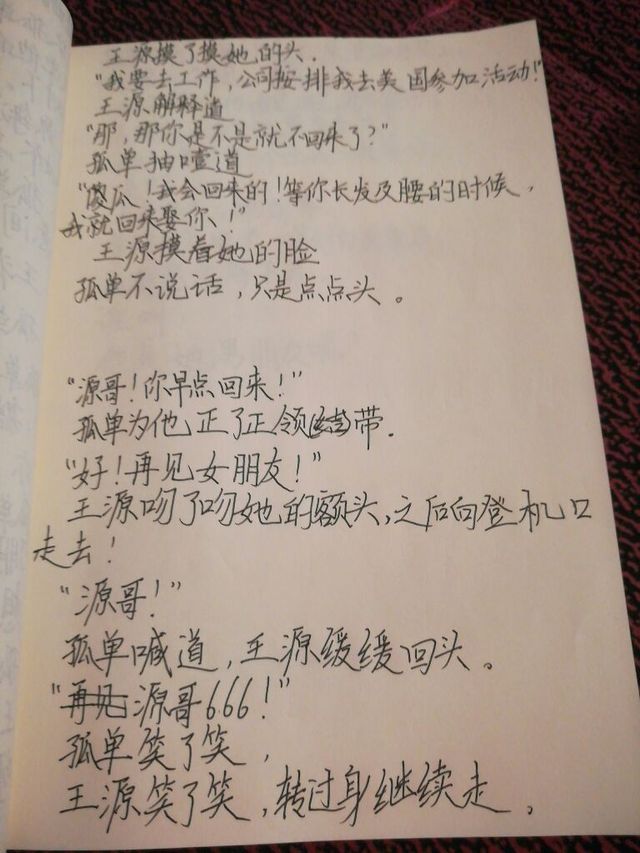 王源摸了摸她的头.
"我要去工作，公司按排我去美国参加活动!"
王源解释道
"那，那你是不是就不回来了?"
孤单抽噎道
"傻瓜!我会回来的!等你长发及腰的时候，
我就回来娶你!"
王源摸着她的脸
孤单不说话，只是点点头。
"源哥!你早点回来!"
孤单为他正了正领带.
"好!再见女朋友!"
王源吻了吻她的额头,之后向登机口
走去!
"源哥!"
孤单喊道，王源缓缓回头。
"再见源哥666!"
孤单笑了笑，
王源笑了笑，转过身继续走。